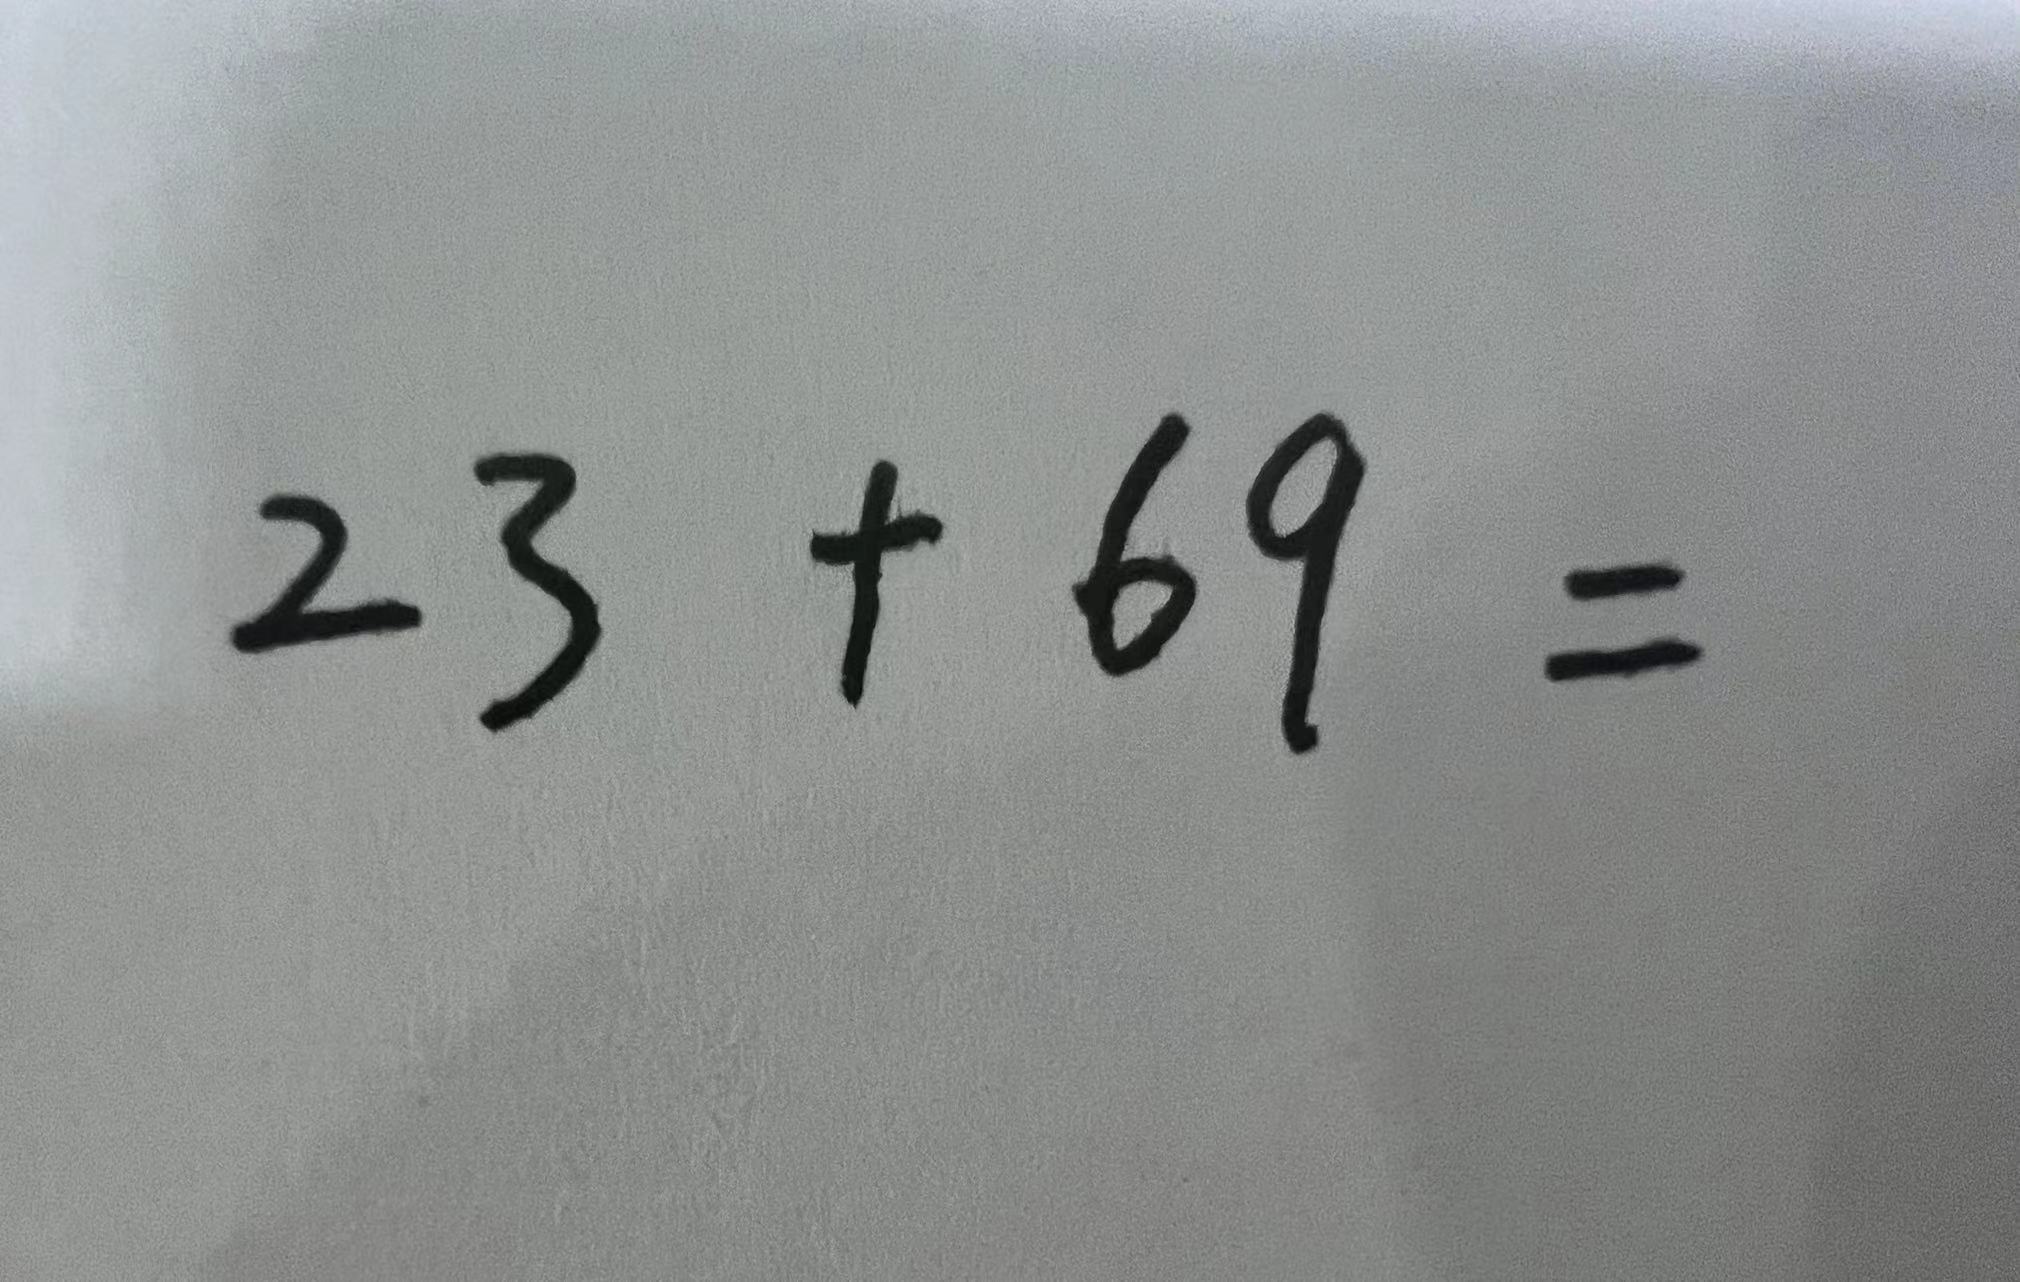 23 + 69 =